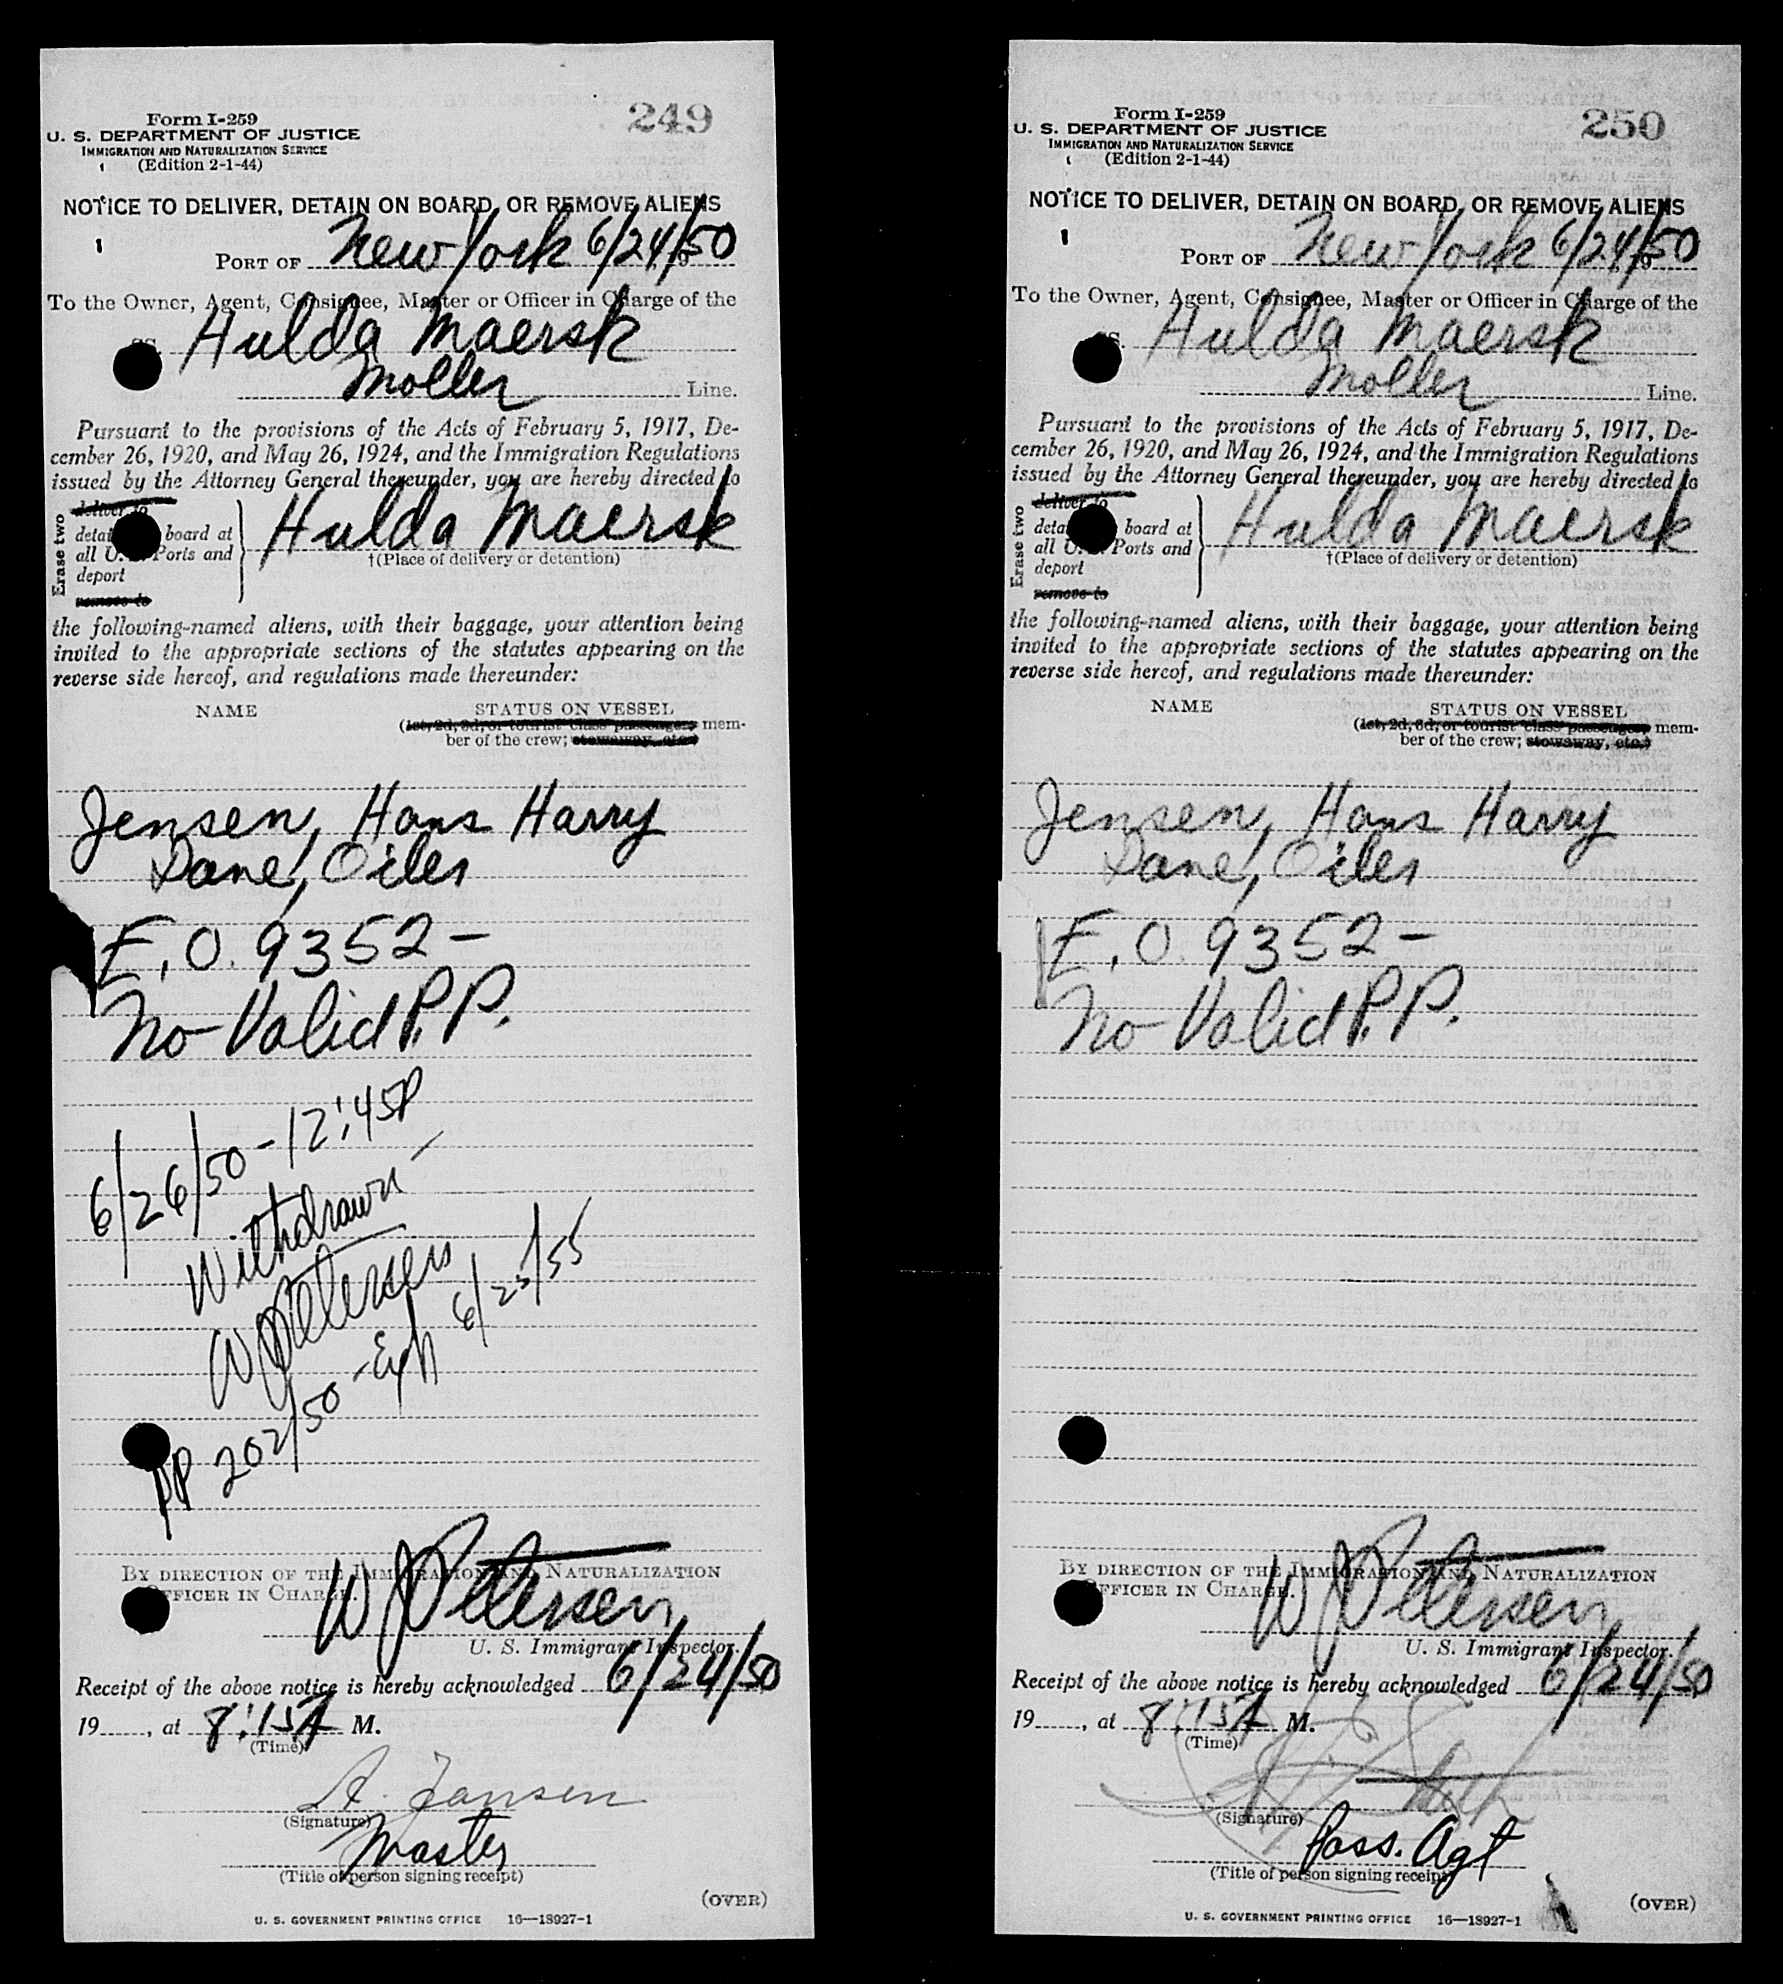 249
Form I-259
U. S. DEPARTMENT OF JUSTICE
IMMIGRATION AND NATURALIZATION SERVICE
(Edition 2-1-44)
NOTICE TO DELIVER, DETAIN ON BOARD, OR REMOVE ALIENS
PORT OF New York 6/24/50
To the Owner, Agent, Consignee, Master or Officer in Charge of the
SS. Hulda Maersk
Moller Line.
Pursuant to the provisions of the Acts of February 5, 1917, De-
cember 26, 1920, and May 26, 1924, and the Immigration Regulations
issued by the Attorney General thereunder, you are hereby directed to
Erase two
deliver to
detain board at
all U. Ports and
deport
remove to
Hulda Maersk
†(Place of delivery or detention)
the following-named aliens, with their baggage, your attention being
invited to the appropriate sections of the statutes appearing on the
reverse side hereof, and regulations made thereunder:
NAME STATUS ON VESSEL
(1st, 2d, 3d, or tourist class passengers, mem-
ber of the crew; stowaway, etc.)
Jensen, Hans Harry
Dane, Oiler
E.O. 9352-
No Valid P.P.
6/26/50-12:45P
Withdrawn-
WJPetersen
PP 202/50 -Exp 6/23/55
BY DIRECTION OF THE IMMIGRATION AND NATURALIZATION
OFFICER IN CHARGE.
WJPetersen
U. S. Immigrant Inspector.
Receipt of the above notice is hereby acknowledged 6/24/50
19 , at 8:15A M.
(Time)
A. Jansen
(Signature)
Master
(Title of person signing receipt)
(OVER)
U. S. GOVERNMENT PRINTING OFFICE 16—18927-1
250
Form I-259
U. S. DEPARTMENT OF JUSTICE
IMMIGRATION AND NATURALIZATION SERVICE
(Edition 2-1-44)
NOTICE TO DELIVER, DETAIN ON BOARD, OR REMOVE ALIENS
PORT OF New York 6/24/50
To the Owner, Agent, Consignee, Master or Officer in Charge of the
SS. Hulda Maersk
Moller Line.
Pursuant to the provisions of the Acts of February 5, 1917, De-
cember 26, 1920, and May 26, 1924, and the Immigration Regulations
issued by the Attorney General thereunder, you are hereby directed to
Erase two
deliver to
detain board at
all U. Ports and
deport
remove to
Hulda Maersk
†(Place of delivery or detention)
the following-named aliens, with their baggage, your attention being
invited to the appropriate sections of the statutes appearing on the
reverse side hereof, and regulations made thereunder:
NAME STATUS ON VESSEL
(1st, 2d, 3d, or tourist class passengers, mem-
ber of the crew; stowaway, etc.)
Jensen, Hans Harry
Dane, Oiler
E.O. 9352-
No Valid P.P.
BY DIRECTION OF THE IMMIGRATION AND NATURALIZATION
OFFICER IN CHARGE.
WJPetersen
U. S. Immigrant Inspector.
Receipt of the above notice is hereby acknowledged 6/24/50
19 , at 8:15A M.
(Time)
(Signature)
Pass. Agt
(Title of person signing receipt)
(OVER)
U. S. GOVERNMENT PRINTING OFFICE 16—18927-1